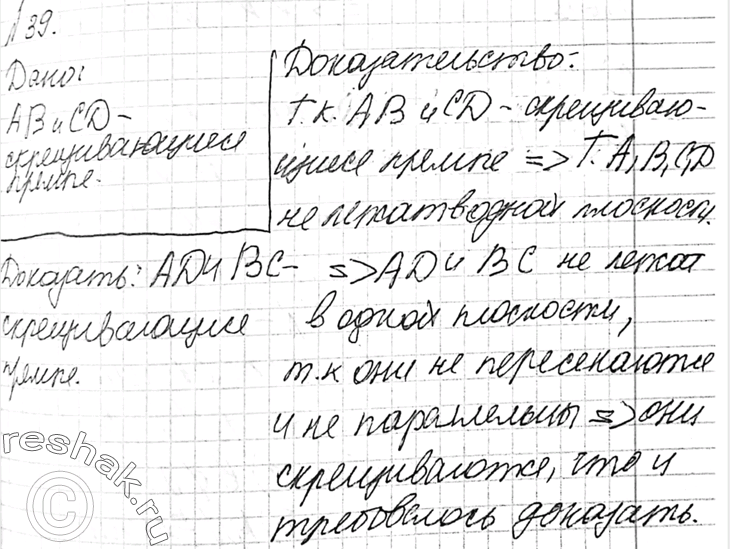 №39.
Дано:
AB и CD -
скрещивающиеся
прямые.
Доказать: AD и BC -
скрещивающие
прямые.
Доказательство:
Т.к. AB и CD - скрещиваю-
щиеся прямые => т. A, B, C, D
не лежат в одной плоскости.
=> AD и BC не лежат
в одной плоскости,
т.к они не пересекаются
и не параллельны => они
скрещиваются, что и
требовалось доказать.
reshak.ru
©